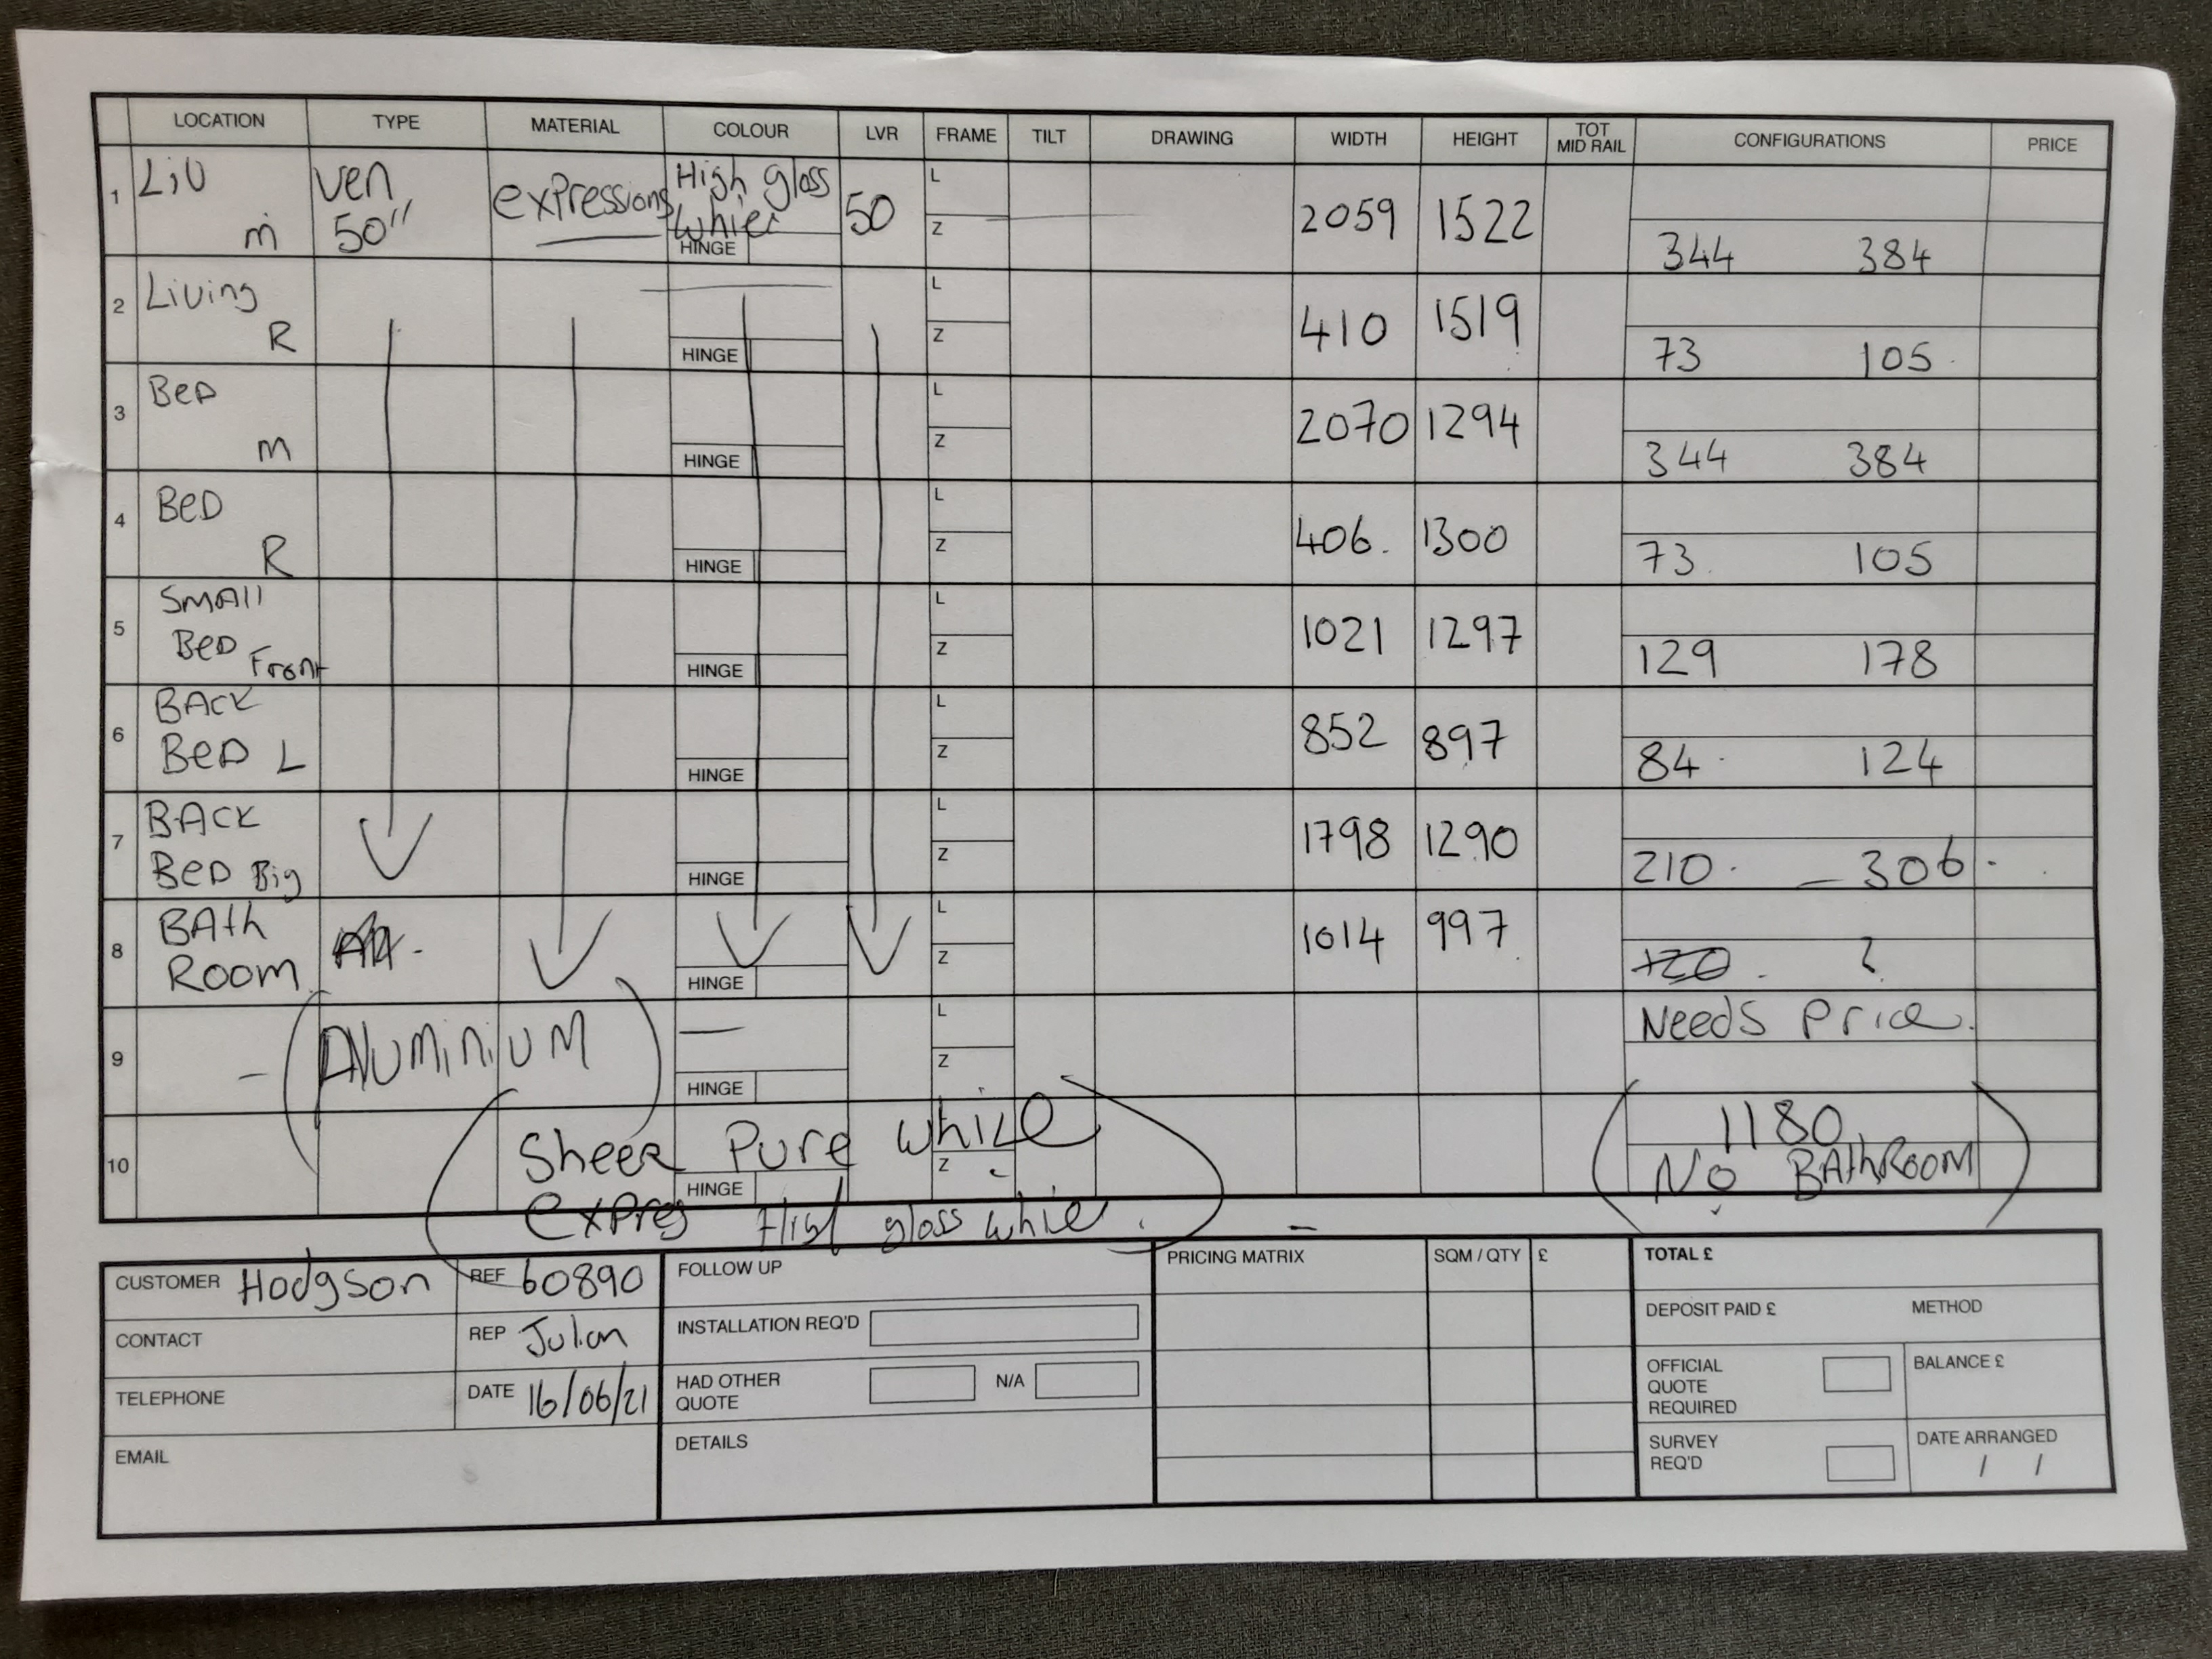 LOCATION TYPE MATERIAL COLOUR LVR FRAME TILT DRAWING WIDTH HEIGHT TOT MID RAIL CONFIGURATIONS PRICE
1 Liv m ven 50" expressions High gloss whie HINGE 50 L Z 2059 1522 344 384
2 Living R HINGE L Z 410 1519 73 105
3 BeD m HINGE L Z 2070 1294 344 384
4 BeD R HINGE L Z 406. 1300 73. 105
5 SMAll BeD Front HINGE L Z 1021 1297 129 178
6 BACK BeD L HINGE L Z 852 897 84 124
7 BACK BeD Big HINGE L Z 1798 1290 210 - 306
8 BAth Room HINGE L Z 1014 997 ?
9 ALUMiNiUM HINGE L Z Needs Price.
10 HINGE Z 1180
Sheer Pure white No BAthROOM
expres High gloss white
CUSTOMER Hodgson REF 60890
CONTACT REP Julian
TELEPHONE DATE 16/06/21
EMAIL
FOLLOW UP
INSTALLATION REQ'D
HAD OTHER QUOTE N/A
DETAILS
PRICING MATRIX SQM / QTY £
TOTAL £
DEPOSIT PAID £ METHOD
OFFICIAL QUOTE REQUIRED BALANCE £
SURVEY REQ'D DATE ARRANGED / /